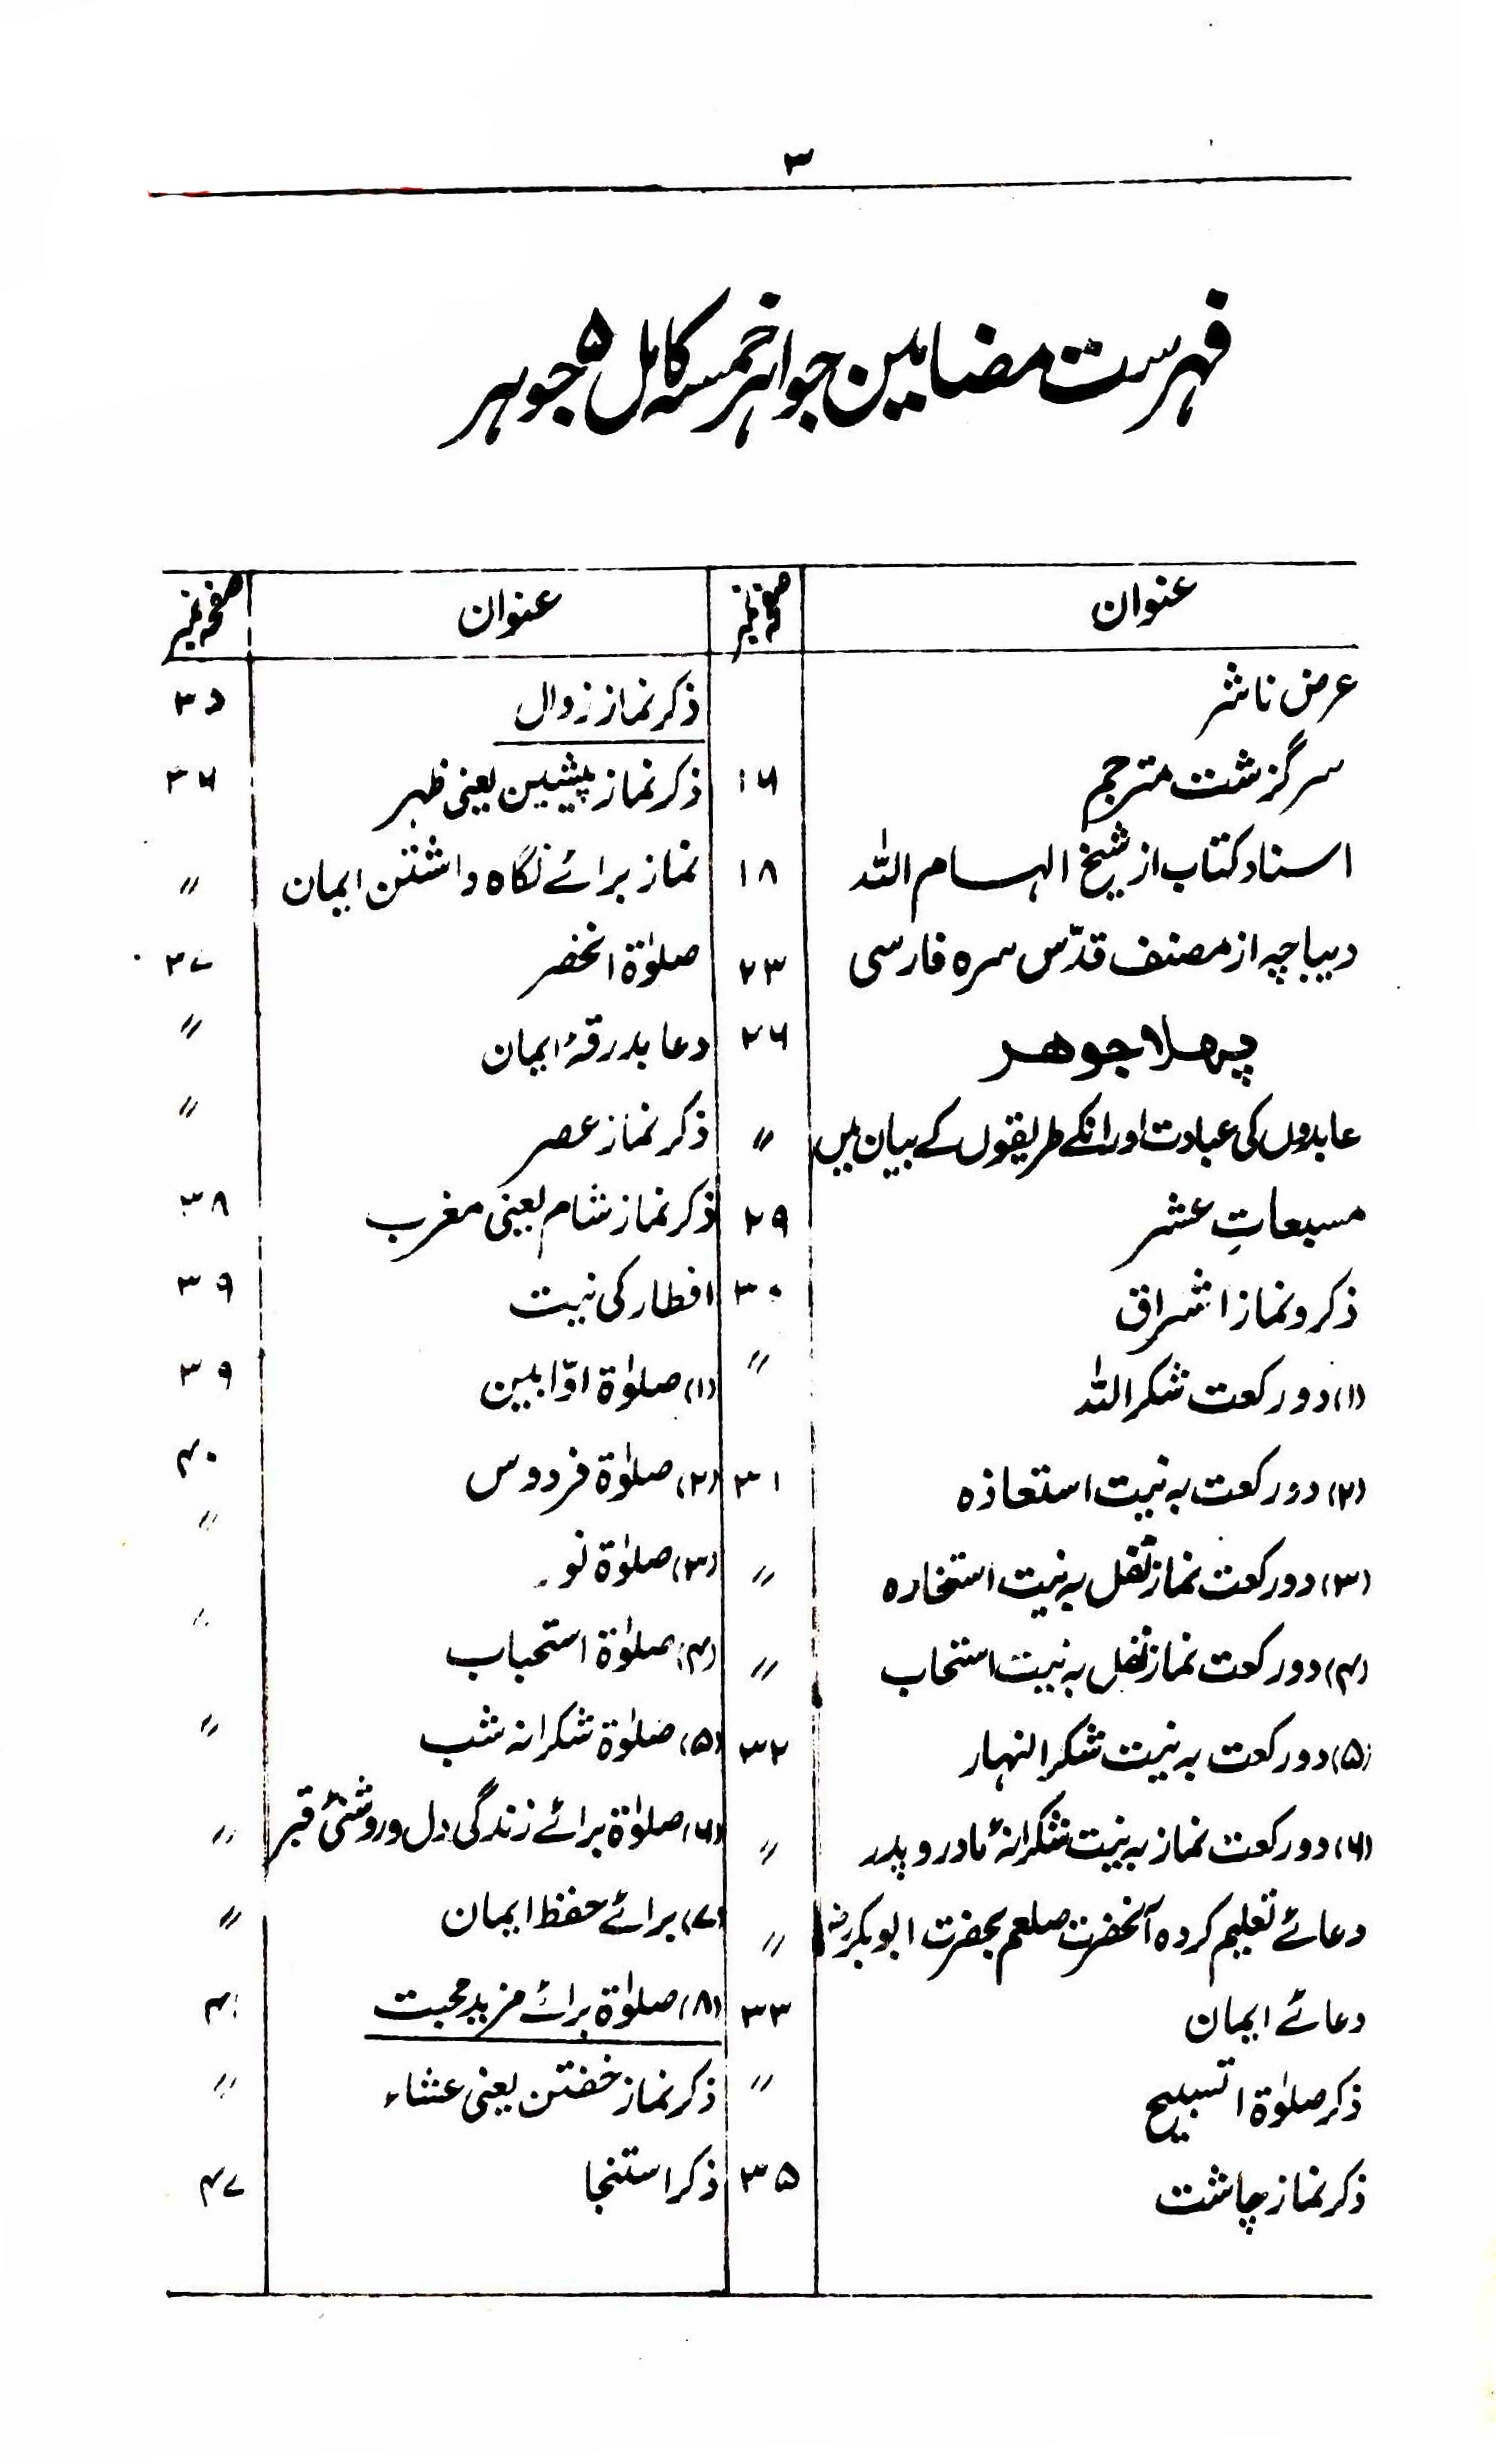 ۳
فہرست مضامین جواہر خمسہ کامل ۵ جوہر
عنوان صفحہ نمبر
عرض ناشر
سرگزشت مترجم ۱۶
اسناد کتاب از شیخ الہام اللہ ۱۸
دیباچہ از مصنف قدّس سرہ فارسی ۲۳
پہلا جوھر ۲۶
عابدوں کی عبادت اور انکے طریقوں کے بیان میں 〃
مسبعاتِ عشر ۲۹
ذکر و نماز اشراق ۳۰
(۱) دو رکعت شکر اللہ 〃
(۲) دو رکعت بہ نیت استعاذہ ۳۱
(۳) دو رکعت نماز نفل بہ نیت استخارہ 〃
(۴) دو رکعت نماز نفل بہ نیت استحاب 〃
(۵) دو رکعت بہ نیت شکر النہار ۳۲
(۶) دو رکعت نماز بہ نیت شکرانۂ مادر و پدر 〃
دعائے تعلیم کردہ آنحضرت صلعم بحضرت ابوبکرؓ 〃
دعائے ایمان ۳۳
ذکر صلوٰۃ اتسبیح 〃
ذکر نماز چاشت ۳۵
عنوان صفحہ نمبر
ذکر نماز زوال ۳۵
ذکر نماز پیشین یعنی ظہر ۳۶
نماز برائے نگاہ داشتن ایمان 〃
صلوٰۃ الخضر ۳۷
دعا بدرقۂ ایمان 〃
ذکر نماز عصر 〃
ذکر نماز شام یعنی مغرب ۳۸
افطار کی نیت ۳۹
(۱) صلوٰۃ اوّابین ۳۹
(۲) صلوٰۃ فردوس ۴۰
(۳) صلوٰۃ نور 〃
(۴) صلوٰۃ استحباب 〃
(۵) صلوٰۃ شکرانہ شب 〃
(۶) صلوٰۃ برائے زندگی دل و روشنیٔ قبر 〃
(۷) برائے حفظ ایمان 〃
(۸) صلوٰۃ برائے مزید محبت ۴۱
ذکر نماز خفتن یعنی عشاء 〃
ذکر استنجا ۴۷